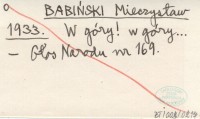 BABIŃSKI Mieczysław
1933. W góry! w góry...
– Głos Narodu nr 169.